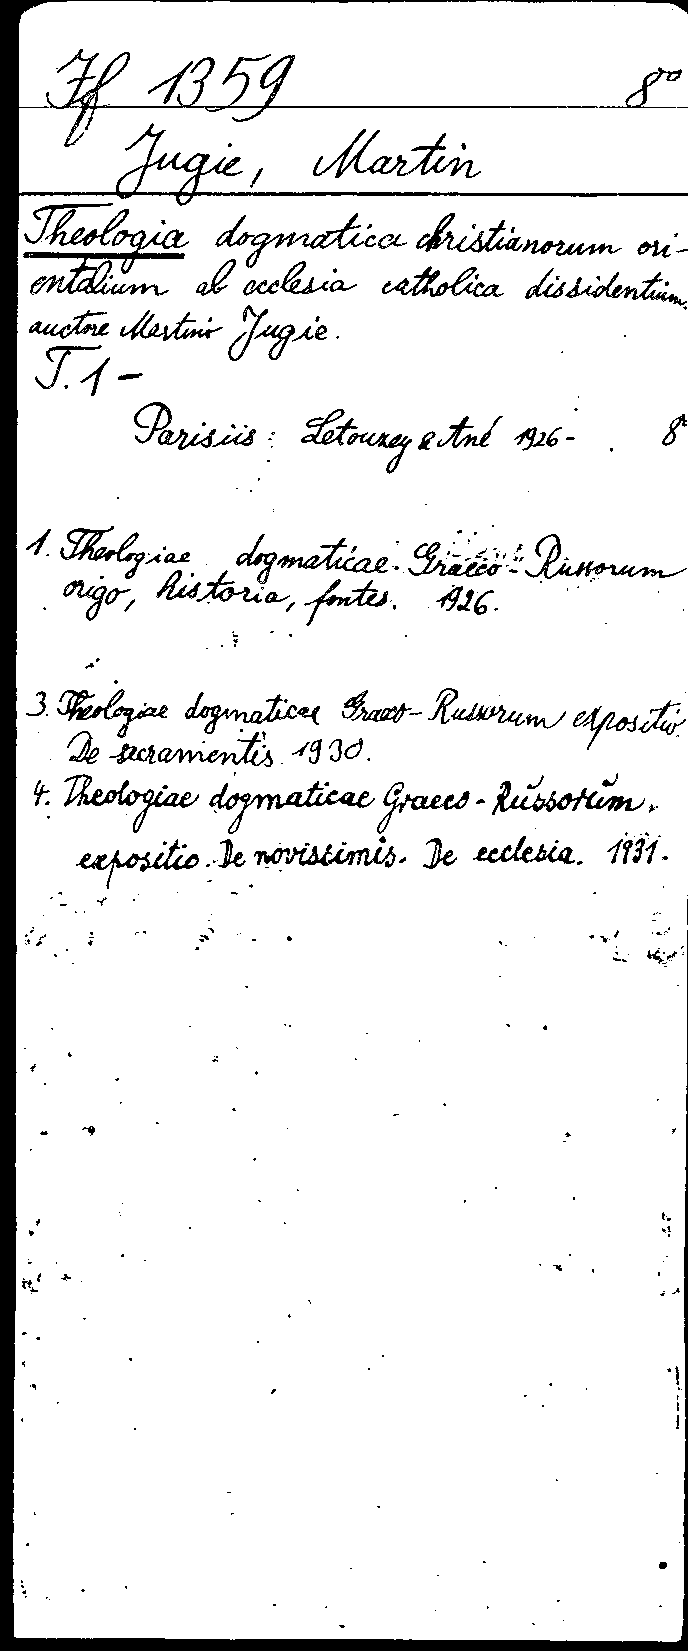 If 1359 8°
Jugie, Martin
Theologia dogmatica christianorum ori-
entalium ab ecclesia catholica dissidentium.
auctore Martino Jugie.
T. 1 -
Parisiis: Letouzey & Ané 1926- . 8°
1. Theologiae dogmaticae Graeco-Russorum
origo, historia, fontes. 1926.
3. Theologiae dogmaticae Graeco-Russorum expositio
De sacramentis 1930.
4. Theologiae dogmaticae Graeco-Russorum.
expositio. De novissimis. De ecclesia. 1931.